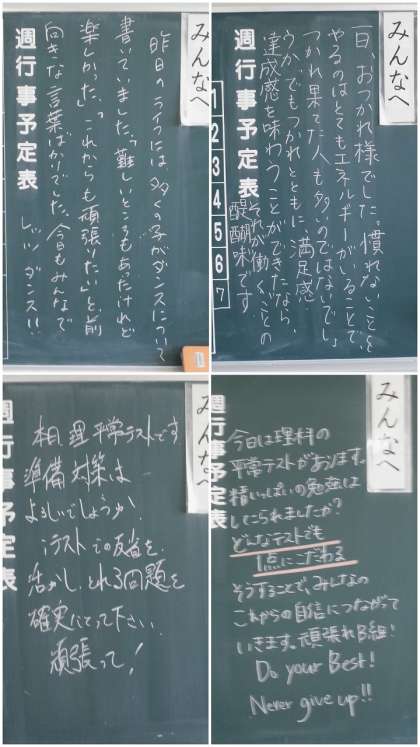 みんなへ
昨日のライフには多くの子がダンスについて
書いていました。「難しいところもあったけれど
楽しかった」、「これからも頑張りたい」と、前
向きな言葉ばかりでした。今日もみんなで
レッツ ダンス!!
週行事予定表
みんなへ
一日、おつかれ様でした。慣れないことを
やるのはとてもエネルギーがいることで、
つかれ果てた人も多いのではないでしょ
うか。でもつかれとともに、満足感
達成感を味わうことができたなら、
それが働くことの
醍醐味です
週行事予定表
1
2
3
4
5
6
7
みんなへ
本日、理平常テストです
準備、対策は
よろしいでしょうか
テストでの反省を
活かし、とれる問題を
確実にとって下さい
頑張って!
週行事予定表
みんなへ
今日は理科の
平常テストがあります。
精いっぱいの勉強は
してこられましたか?
どんなテストでも
1点にこだわる
そうすることで、みんなの
これからの自信につながって
いきます。頑張れB組!
Do your Best!
Never give up!!
週行事予定表